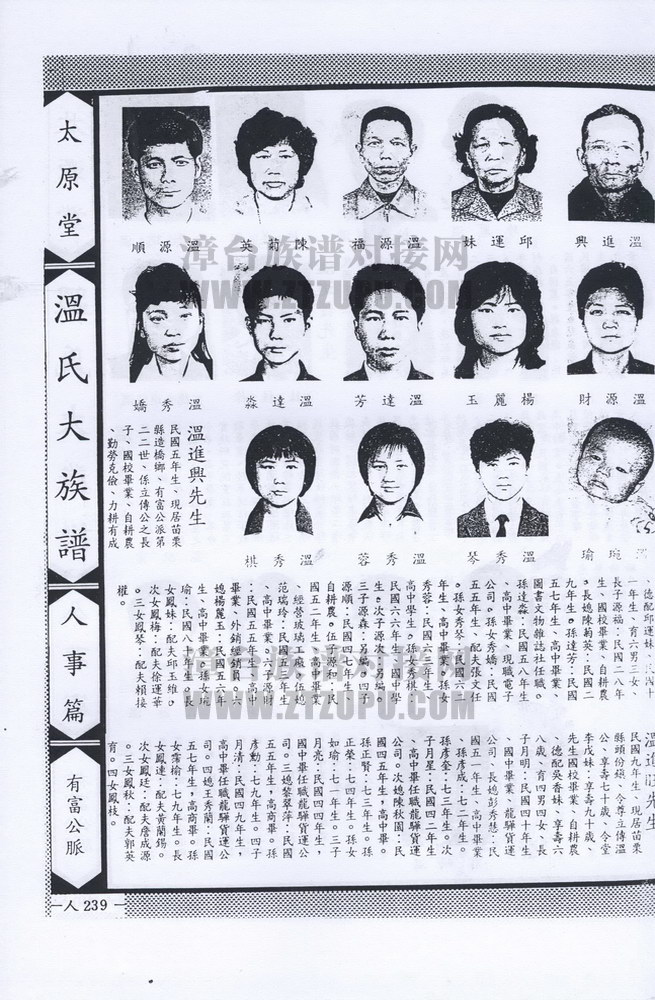 太原堂
溫氏大族譜
人事篇
有富公脈
人 239
溫進興
邱運妹
溫源福
陳菊英
溫源順
溫源財
楊麗玉
溫達芳
溫達淼
溫秀嬌
溫琬瑜
溫秀琴
溫秀蓉
溫秀棋
溫進興先生
民國五年生、現居苗栗
縣造橋鄉、有富公派第
二二世、係立傳公之長
子、國校畢業、自耕農
、勤勞克儉、力耕有成
、德配邱運妹:民國十
一年生、育六男三女、
長子源福:民國二八年
生、國校畢業、自耕農
。長媳陳菊英:民國二
九年生。孫達芳:民國
五七年生、高中畢業、
圖書文物雜誌社任職。
孫達淼:民國五八年生
、高中畢業、現職電子
公司。孫女秀嬌:民國
五五年生、配夫張文任
。孫女秀琴:民國六一
年生、高中畢業、孫女
秀蓉:民國六三年生、
高中學生。孫女秀棋:
民國六六年生、國中學
生。次子源次:另編。
三子源森:另編。四子
源順:民國四七年生、
自耕農。伍子源和:民
國五二年生、高中畢業
、經營玻璃工廠。伍媳
范瑞玲:民國五四年生
、高中畢業。六子源財
:民國五五年生、高中
畢業、外銷經銷員。六
媳楊麗玉:民國五六年
生、高中畢業。孫女琬
瑜:民國八十年生。長
女鳳妹:配夫邱玉維。
次女鳳梅:配夫徐運華
。三女鳳琴:配夫賴接
權。
溫進旺先生
民國九年生、現居苗栗
縣頭份鎮、令尊立傳溫
公、享壽七十歲、令堂
李戊妹:享壽九十歲、
先生國校畢業、自耕農
、德配吳香妹、享壽六
八歲、育四男四女、長
子月明:民國四十年生
、國中畢業、龍驊貨運
公司。長媳彭秀慧:民
國五一年生、高中畢業
、孫彥成:七二年生。
孫彥奎:七三年生。次
子月星:民國四二年生
、高中畢任職龍驊貨運
公司。次媳陳秋園:民
國四五年生、高中畢。
孫正賢:七三年生。孫
正榮:七四年生。孫女
如瑜:七一年生。三子
月亮:民國四四年生、
國中畢任職龍驊貨運公
司。三媳黎翠萍:民國
五五年生,高商畢。孫
彥勳:七九年生。四子
月清:民國四九年生,
高中畢任職龍驊貨運公
司。四媳王秀蘭:民國
五五年生,高商畢。孫
女霈榆:七九年生。長
女鳳連:配夫黃蘭錫。
次女鳳廷:配夫詹成源
。三女鳳秋:配夫郭英
育。四女鳳枝。
漳台族谱对接网
WWW.ZTZUPU.COM
漳台族谱对接网
WWW.ZTZUPU.COM